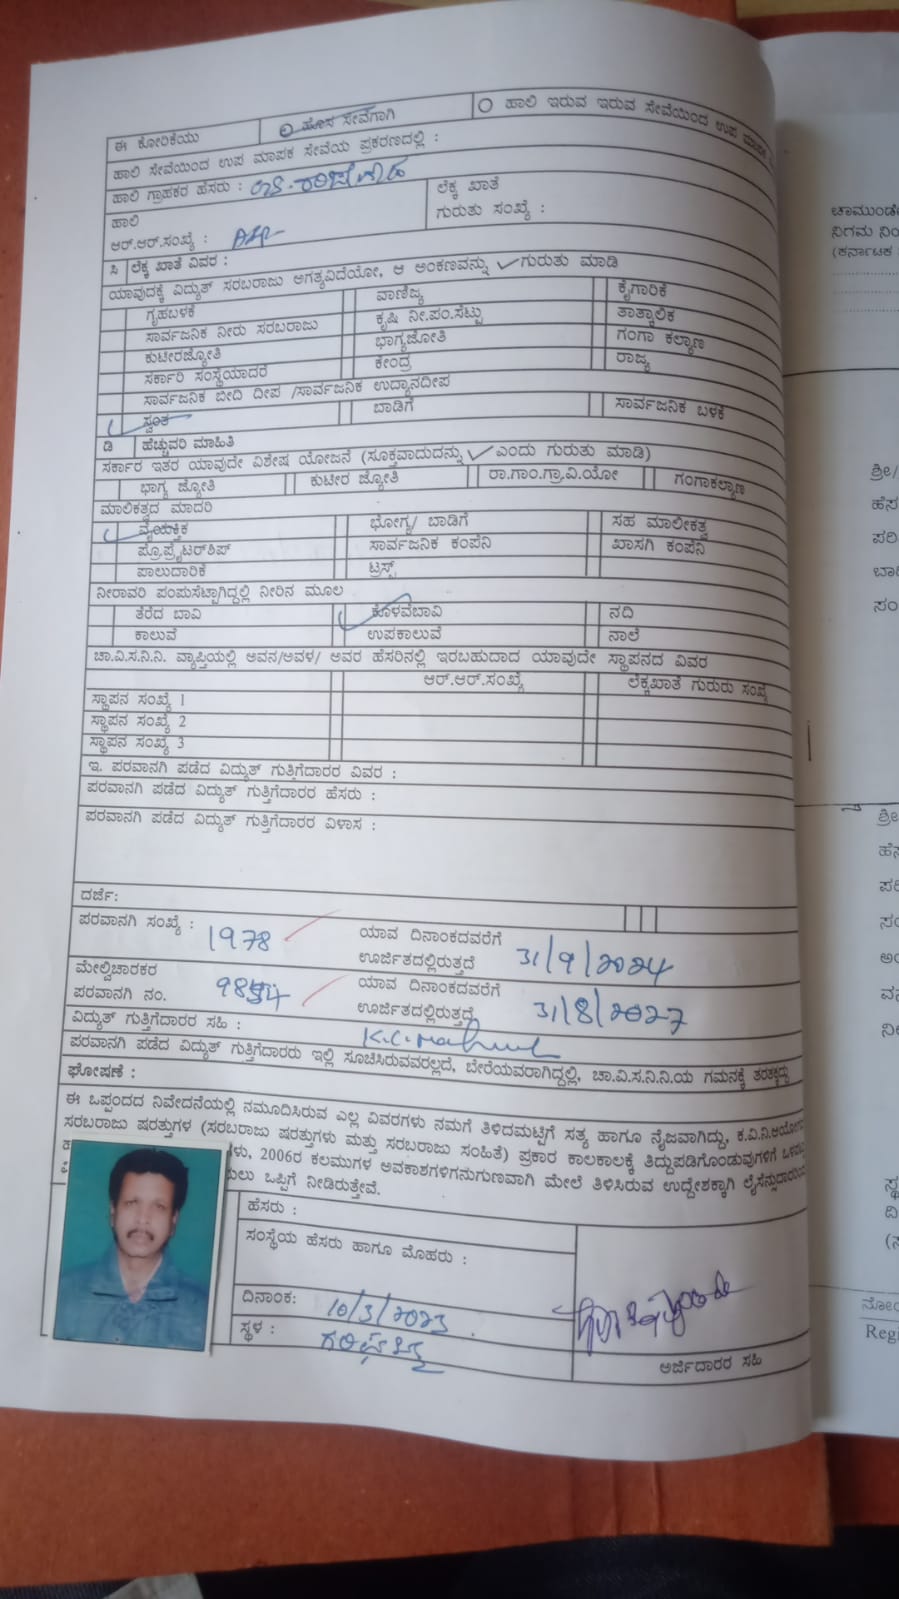 ಈ ಕೋರಿಕೆಯು
ಹೊಸ ಸೇವೆಗಾಗಿ
ಹಾಲಿ ಇರುವ ಇರುವ ಸೇವೆಯಿಂದ ಉಪ ಮಾಪಕ
ಹಾಲಿ ಸೇವೆಯಿಂದ ಉಪ ಮಾಪಕ ಸೇವೆಯ ಪ್ರಕರಣದಲ್ಲಿ :
ಹಾಲಿ ಗ್ರಾಹಕರ ಹೆಸರು :
ಹಾಲಿ
ಆರ್.ಆರ್.ಸಂಖ್ಯೆ :
ಲೆಕ್ಕ ಖಾತೆ
ಗುರುತು ಸಂಖ್ಯೆ :
ಸಿ ಲೆಕ್ಕ ಖಾತೆ ವಿವರ :
ಯಾವುದಕ್ಕೆ ವಿದ್ಯುತ್ ಸರಬರಾಜು ಅಗತ್ಯವಿದೆಯೋ, ಆ ಅಂಕಣವನ್ನು ✓ ಗುರುತು ಮಾಡಿ
ಗೃಹಬಳಕೆ ವಾಣಿಜ್ಯ ಕೈಗಾರಿಕೆ
ಸಾರ್ವಜನಿಕ ನೀರು ಸರಬರಾಜು ಕೃಷಿ ನೀ.ಪಂ.ಸೆಟ್ಟು ತಾತ್ಕಾಲಿಕ
ಕುಟೀರಜ್ಯೋತಿ ಭಾಗ್ಯಜ್ಯೋತಿ ಗಂಗಾ ಕಲ್ಯಾಣ
ಸರ್ಕಾರಿ ಸಂಸ್ಥೆಯಾದರೆ ಕೇಂದ್ರ ರಾಜ್ಯ
ಸಾರ್ವಜನಿಕ ಬೀದಿ ದೀಪ /ಸಾರ್ವಜನಿಕ ಉದ್ಯಾನದೀಪ
ಸ್ವಂತ ಬಾಡಿಗೆ ಸಾರ್ವಜನಿಕ ಬಳಕೆ
ಡಿ ಹೆಚ್ಚುವರಿ ಮಾಹಿತಿ
ಸರ್ಕಾರ ಇತರ ಯಾವುದೇ ವಿಶೇಷ ಯೋಜನೆ (ಸೂಕ್ತವಾದುದನ್ನು ✓ ಎಂದು ಗುರುತು ಮಾಡಿ)
ಭಾಗ್ಯ ಜ್ಯೋತಿ ಕುಟೀರ ಜ್ಯೋತಿ ರಾ.ಗಾಂ.ಗ್ರಾ.ವಿ.ಯೋ ಗಂಗಾಕಲ್ಯಾಣ
ಮಾಲಿಕತ್ವದ ಮಾದರಿ
ವೈಯಕ್ತಿಕ ಭೋಗ್ಯ/ ಬಾಡಿಗೆ ಸಹ ಮಾಲೀಕತ್ವ
ಪ್ರೊಪ್ರೈಟರ್‌ಶಿಪ್ ಸಾರ್ವಜನಿಕ ಕಂಪೆನಿ ಖಾಸಗಿ ಕಂಪೆನಿ
ಪಾಲುದಾರಿಕೆ ಟ್ರಸ್ಟ್
ನೀರಾವರಿ ಪಂಪುಸೆಟ್ಟಾಗಿದ್ದಲ್ಲಿ ನೀರಿನ ಮೂಲ
ತೆರೆದ ಬಾವಿ ಕೊಳವೆಬಾವಿ ನದಿ
ಕಾಲುವೆ ಉಪಕಾಲುವೆ ನಾಲೆ
ಚಾ.ವಿ.ಸ.ನಿ.ನಿ. ವ್ಯಾಪ್ತಿಯಲ್ಲಿ ಅವನ/ಅವಳ/ ಅವರ ಹೆಸರಿನಲ್ಲಿ ಇರಬಹುದಾದ ಯಾವುದೇ ಸ್ಥಾಪನದ ವಿವರ
ಆರ್.ಆರ್.ಸಂಖ್ಯೆ ಲೆಕ್ಕಖಾತೆ ಗುರುರು ಸಂಖ್ಯೆ
ಸ್ಥಾಪನ ಸಂಖ್ಯೆ 1
ಸ್ಥಾಪನ ಸಂಖ್ಯೆ 2
ಸ್ಥಾಪನ ಸಂಖ್ಯೆ 3
ಇ. ಪರವಾನಗಿ ಪಡೆದ ವಿದ್ಯುತ್ ಗುತ್ತಿಗೆದಾರರ ವಿವರ :
ಪರವಾನಗಿ ಪಡೆದ ವಿದ್ಯುತ್ ಗುತ್ತಿಗೆದಾರರ ಹೆಸರು :
ಪರವಾನಗಿ ಪಡೆದ ವಿದ್ಯುತ್ ಗುತ್ತಿಗೆದಾರರ ವಿಳಾಸ :
ದರ್ಜೆ:
ಪರವಾನಗಿ ಸಂಖ್ಯೆ : 1978
ಯಾವ ದಿನಾಂಕದವರೆಗೆ
ಊರ್ಜಿತದಲ್ಲಿರುತ್ತದೆ 31/9/2024
ಮೇಲ್ವಿಚಾರಕರ
ಪರವಾನಗಿ ನಂ.
ಯಾವ ದಿನಾಂಕದವರೆಗೆ
ಊರ್ಜಿತದಲ್ಲಿರುತ್ತದೆ 31/8/2027
ವಿದ್ಯುತ್ ಗುತ್ತಿಗೆದಾರರ ಸಹಿ :
ಪರವಾನಗಿ ಪಡೆದ ವಿದ್ಯುತ್ ಗುತ್ತಿಗೆದಾರರು ಇಲ್ಲಿ ಸೂಚಿಸಿರುವವರಲ್ಲದೆ, ಬೇರೆಯವರಾಗಿದ್ದಲ್ಲಿ, ಚಾ.ವಿ.ಸ.ನಿ.ನಿ.ಯ ಗಮನಕ್ಕೆ ತರತಕ್ಕದ್ದು
ಘೋಷಣೆ :
ಈ ಒಪ್ಪಂದದ ನಿವೇದನೆಯಲ್ಲಿ ನಮೂದಿಸಿರುವ ಎಲ್ಲ ವಿವರಗಳು ನಮಗೆ ತಿಳಿದಮಟ್ಟಿಗೆ ಸತ್ಯ ಹಾಗೂ ನೈಜವಾಗಿದ್ದು,
ಸರಬರಾಜು ಷರತ್ತುಗಳ (ಸರಬರಾಜು ಷರತ್ತುಗಳು ಮತ್ತು ಸರಬರಾಜು ಸಂಹಿತೆ) ಪ್ರಕಾರ ಕಾಲಕಾಲಕ್ಕೆ ತಿದ್ದುಪಡಿಗೊಂಡುವುಗಳಿಗೆ
2006ರ ಕಲಮುಗಳ ಅವಕಾಶಗಳಿಗನುಗುಣವಾಗಿ ಮೇಲೆ ತಿಳಿಸಿರುವ ಉದ್ದೇಶಕ್ಕಾಗಿ
ಒಪ್ಪಿಗೆ ನೀಡಿರುತ್ತೇವೆ.
ಹೆಸರು :
ಸಂಸ್ಥೆಯ ಹೆಸರು ಹಾಗೂ ಮೊಹರು :
ದಿನಾಂಕ: 10/3/2023
ಸ್ಥಳ :
ಅರ್ಜಿದಾರರ ಸಹಿ
ನಿಗಮ ನಿಂ
(ಕರ್ನಾಟಕ
ಶ್ರೀ/
ಶ್ರೀ/
Regi